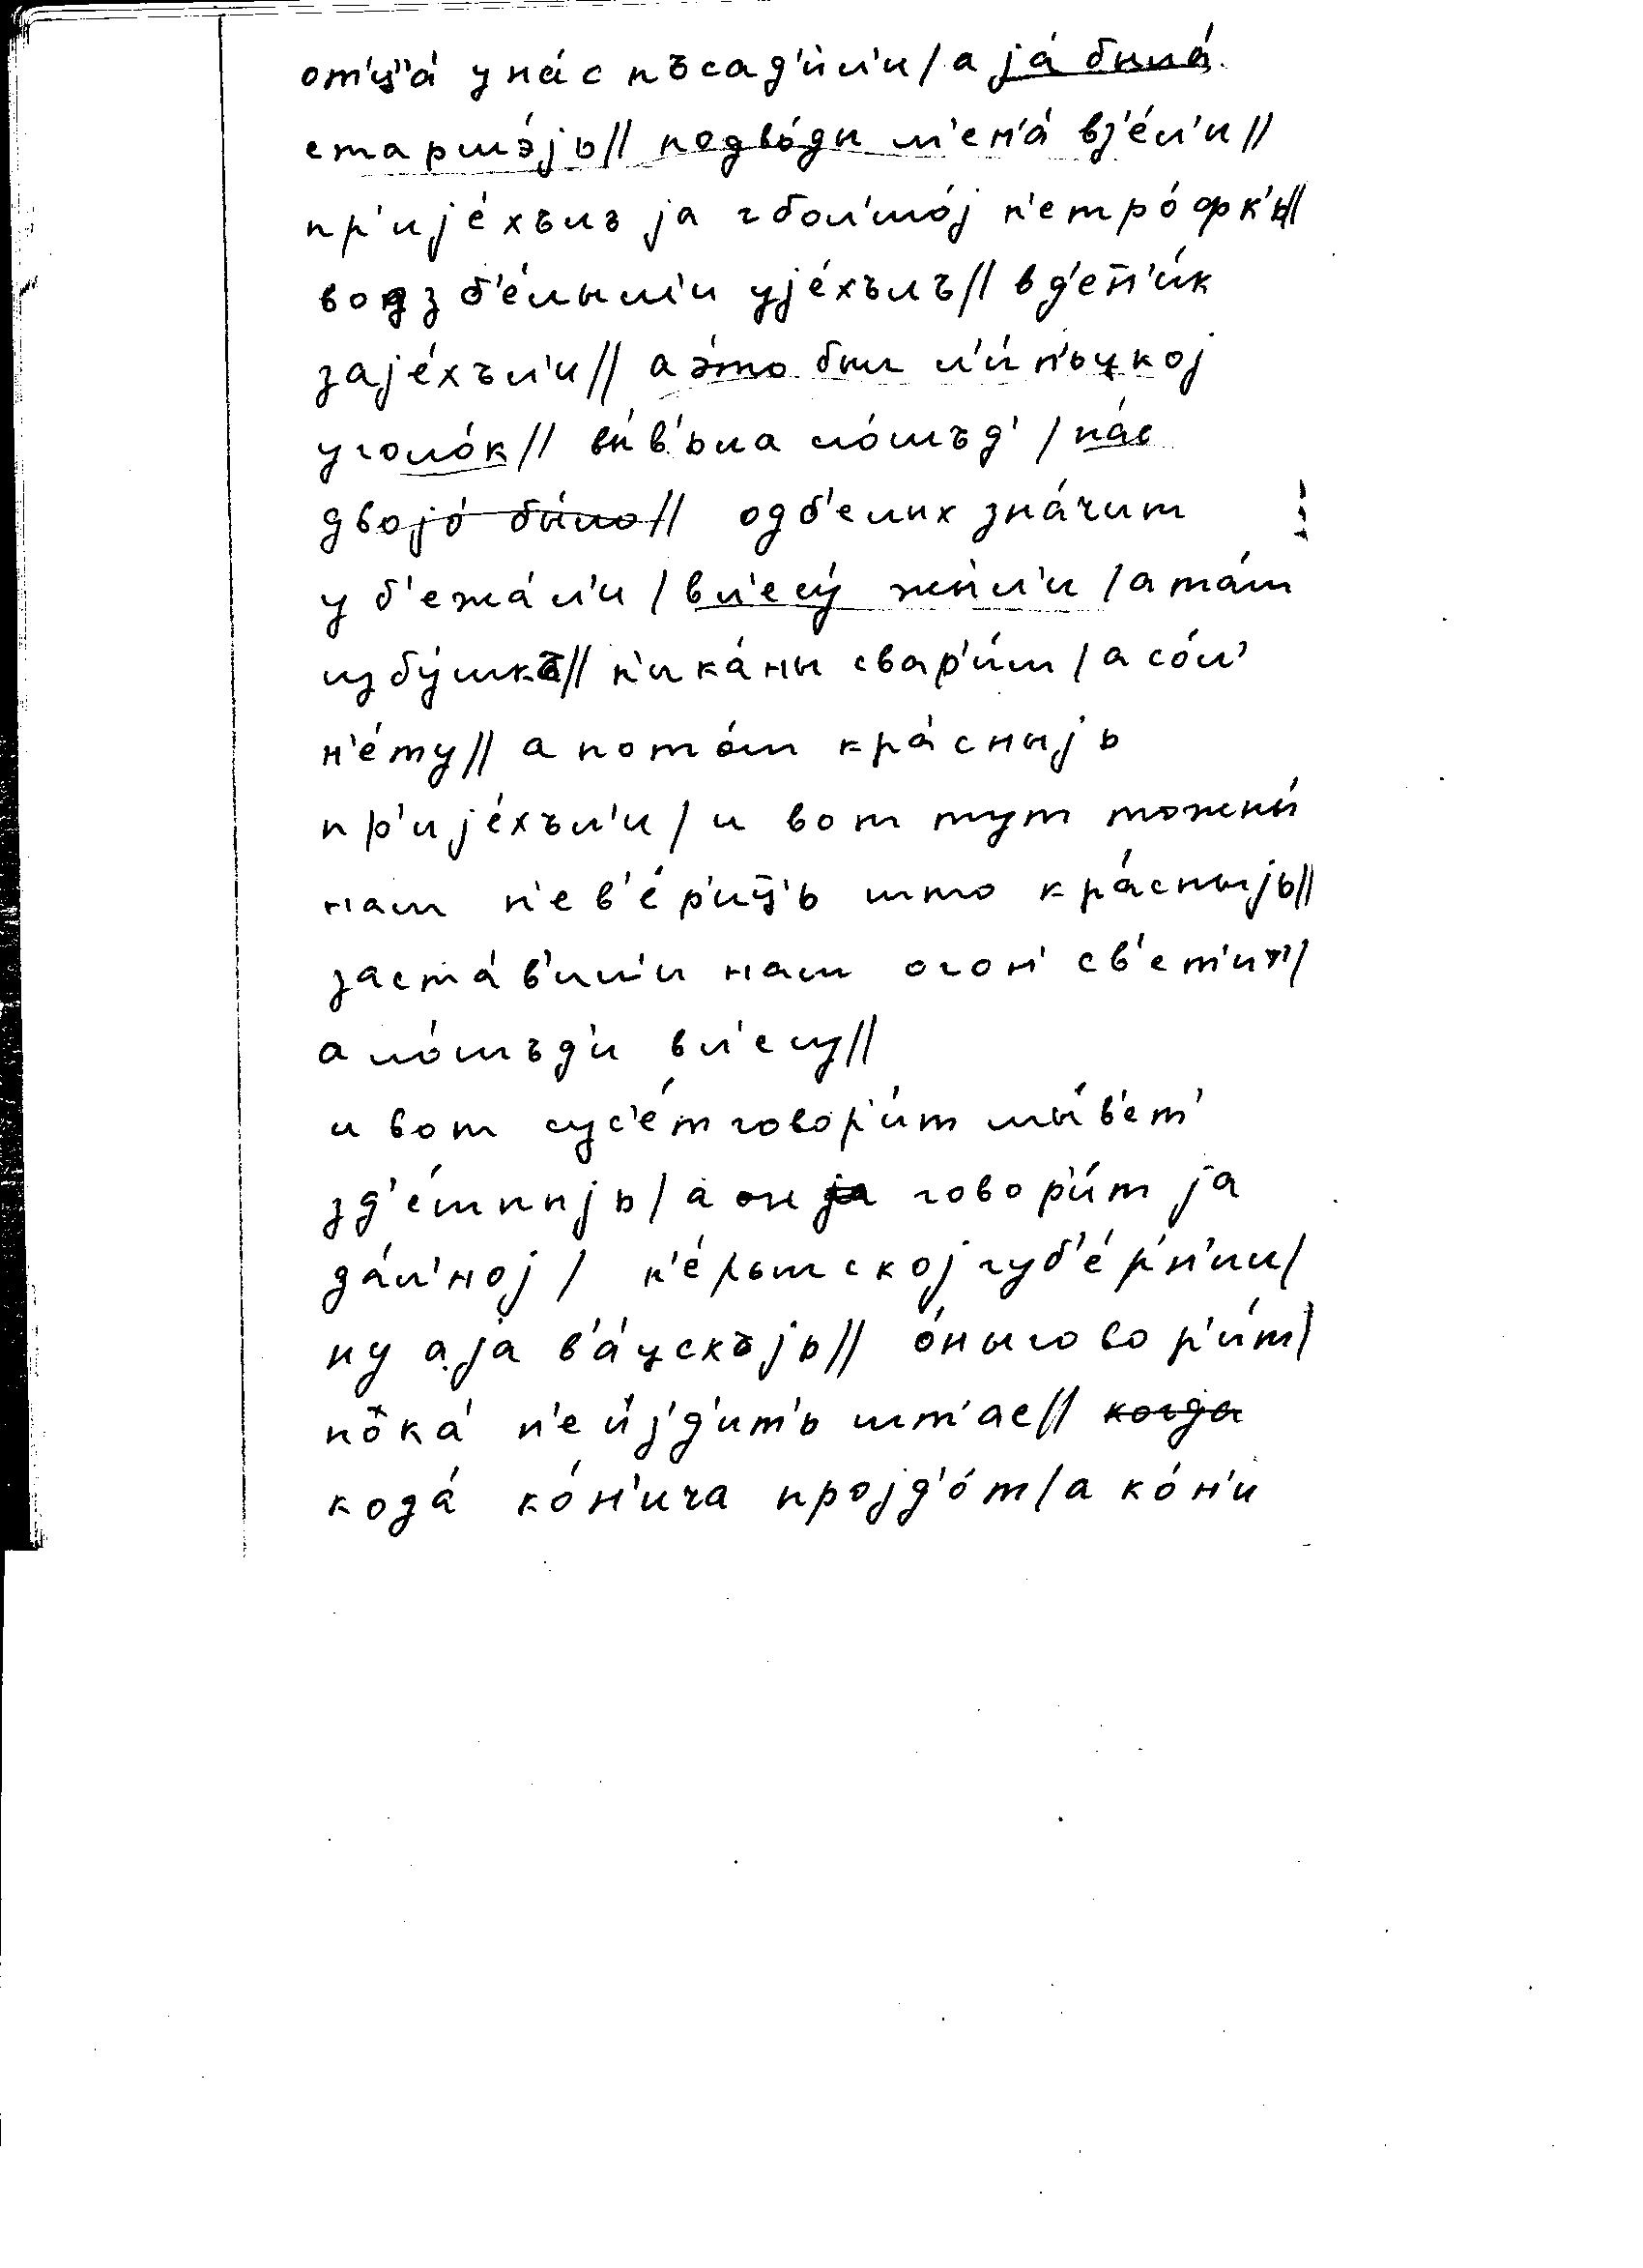 от'ц'а́ у на́с пъсад'и́л'и / а jа́ была́
старшэ́jь // подво́ды м'ен'а́ вз'е́л'и //
пр'иjе́хълъ jа г бол'шо́j п'етро́фк'ь //
вод з б'е́лым'и уjе́хълъ // в д'еп'и́к
заjе́хъл'и // а э́то был л'и́п'ьцкоj
уголо́к // вы́в'ьла ло́шъд' / на́с
двоjо́ бы́ло // од б'елых зна́чит
уб'ежа́л'и / в л'есу́ жы́л'и / а та́м
избу́шка // п'ика́ны свар'и́м / а со́л'
н'е́ту // а пото́м кра́сныjь
пр'иjе́хъл'и / и вот тут тожны́
нам н'е в'е́р'иц'ь што кра́сныjь //
заста́в'ил'и нам огон' св'ет'ит' /
а ло́шъд'и в л'есу //
и вот сус'е́т говор'и́т мы́ в'ет'
зд'е́шныjь / а он jа говор'и́т jа
да́л'ноj / п'е́рьмскоj губ'е́р'н'ии /
ну а jа в'а́цскъjь // о́ны говор'и́т /
пока́ н'е и́jд'ит'ь шт'ас // когда
кода́ ко́н'ича проjд'о́т / а ко́н'и